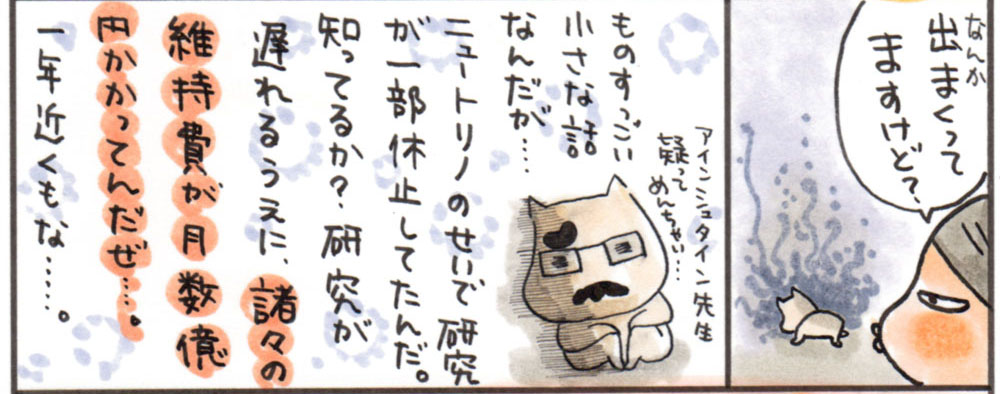 なんか
出まくって
ますけど?
ものすっごい
小さな話
なんだが……
アインシュタイン先生
疑って
めんちゃい…
ニュートリノのせいで研究
が一部休止してたんだ。
知ってるか?研究が
遅れるうえに、諸々の
維持費が月数億
円かかってんだぜ……。
一年近くもな……。